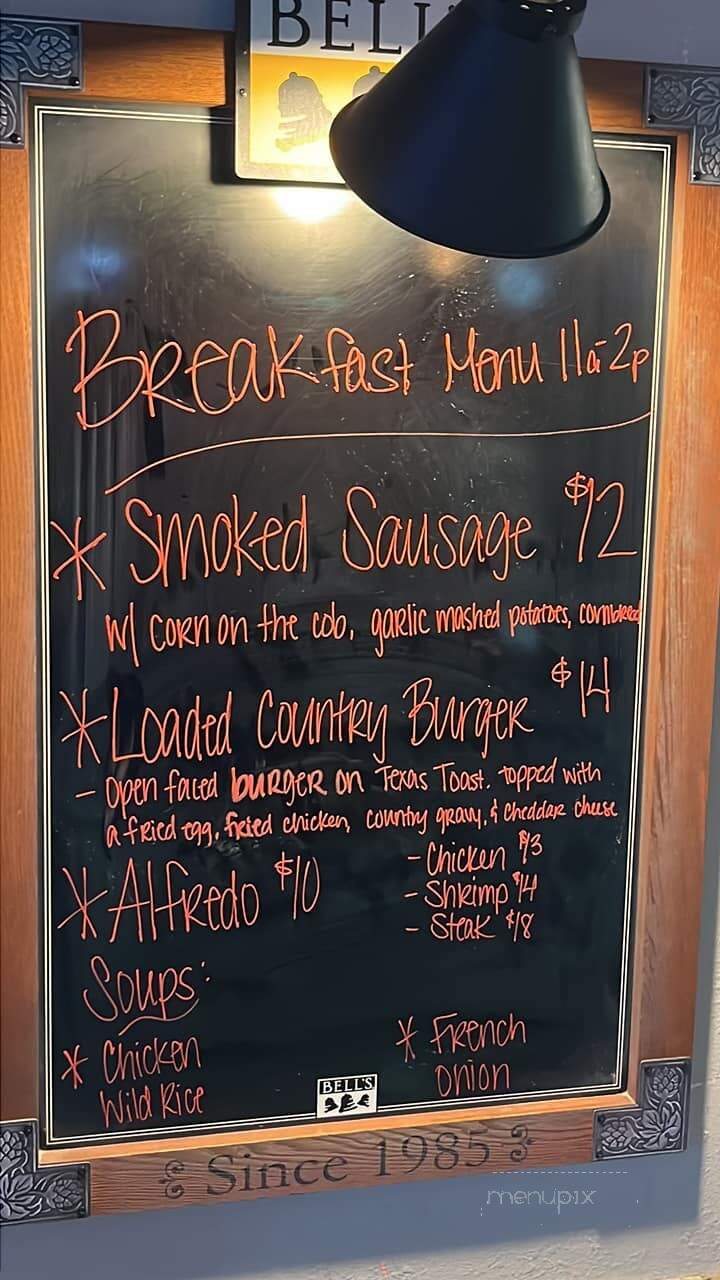 BELL'S
Breakfast Menu 11a-2p
* Smoked Sausage $12
w/ corn on the cob, garlic mashed potatoes, cornbread
* Loaded Country Burger $14
- Open faced burger on Texas Toast. topped with
a fried egg, fried chicken, country gravy, & cheddar cheese
* Alfredo $10
- Chicken $13
- Shrimp $14
- Steak $18
Soups:
* Chicken
Wild Rice
* French
onion
BELL'S
Since 1985
menupix